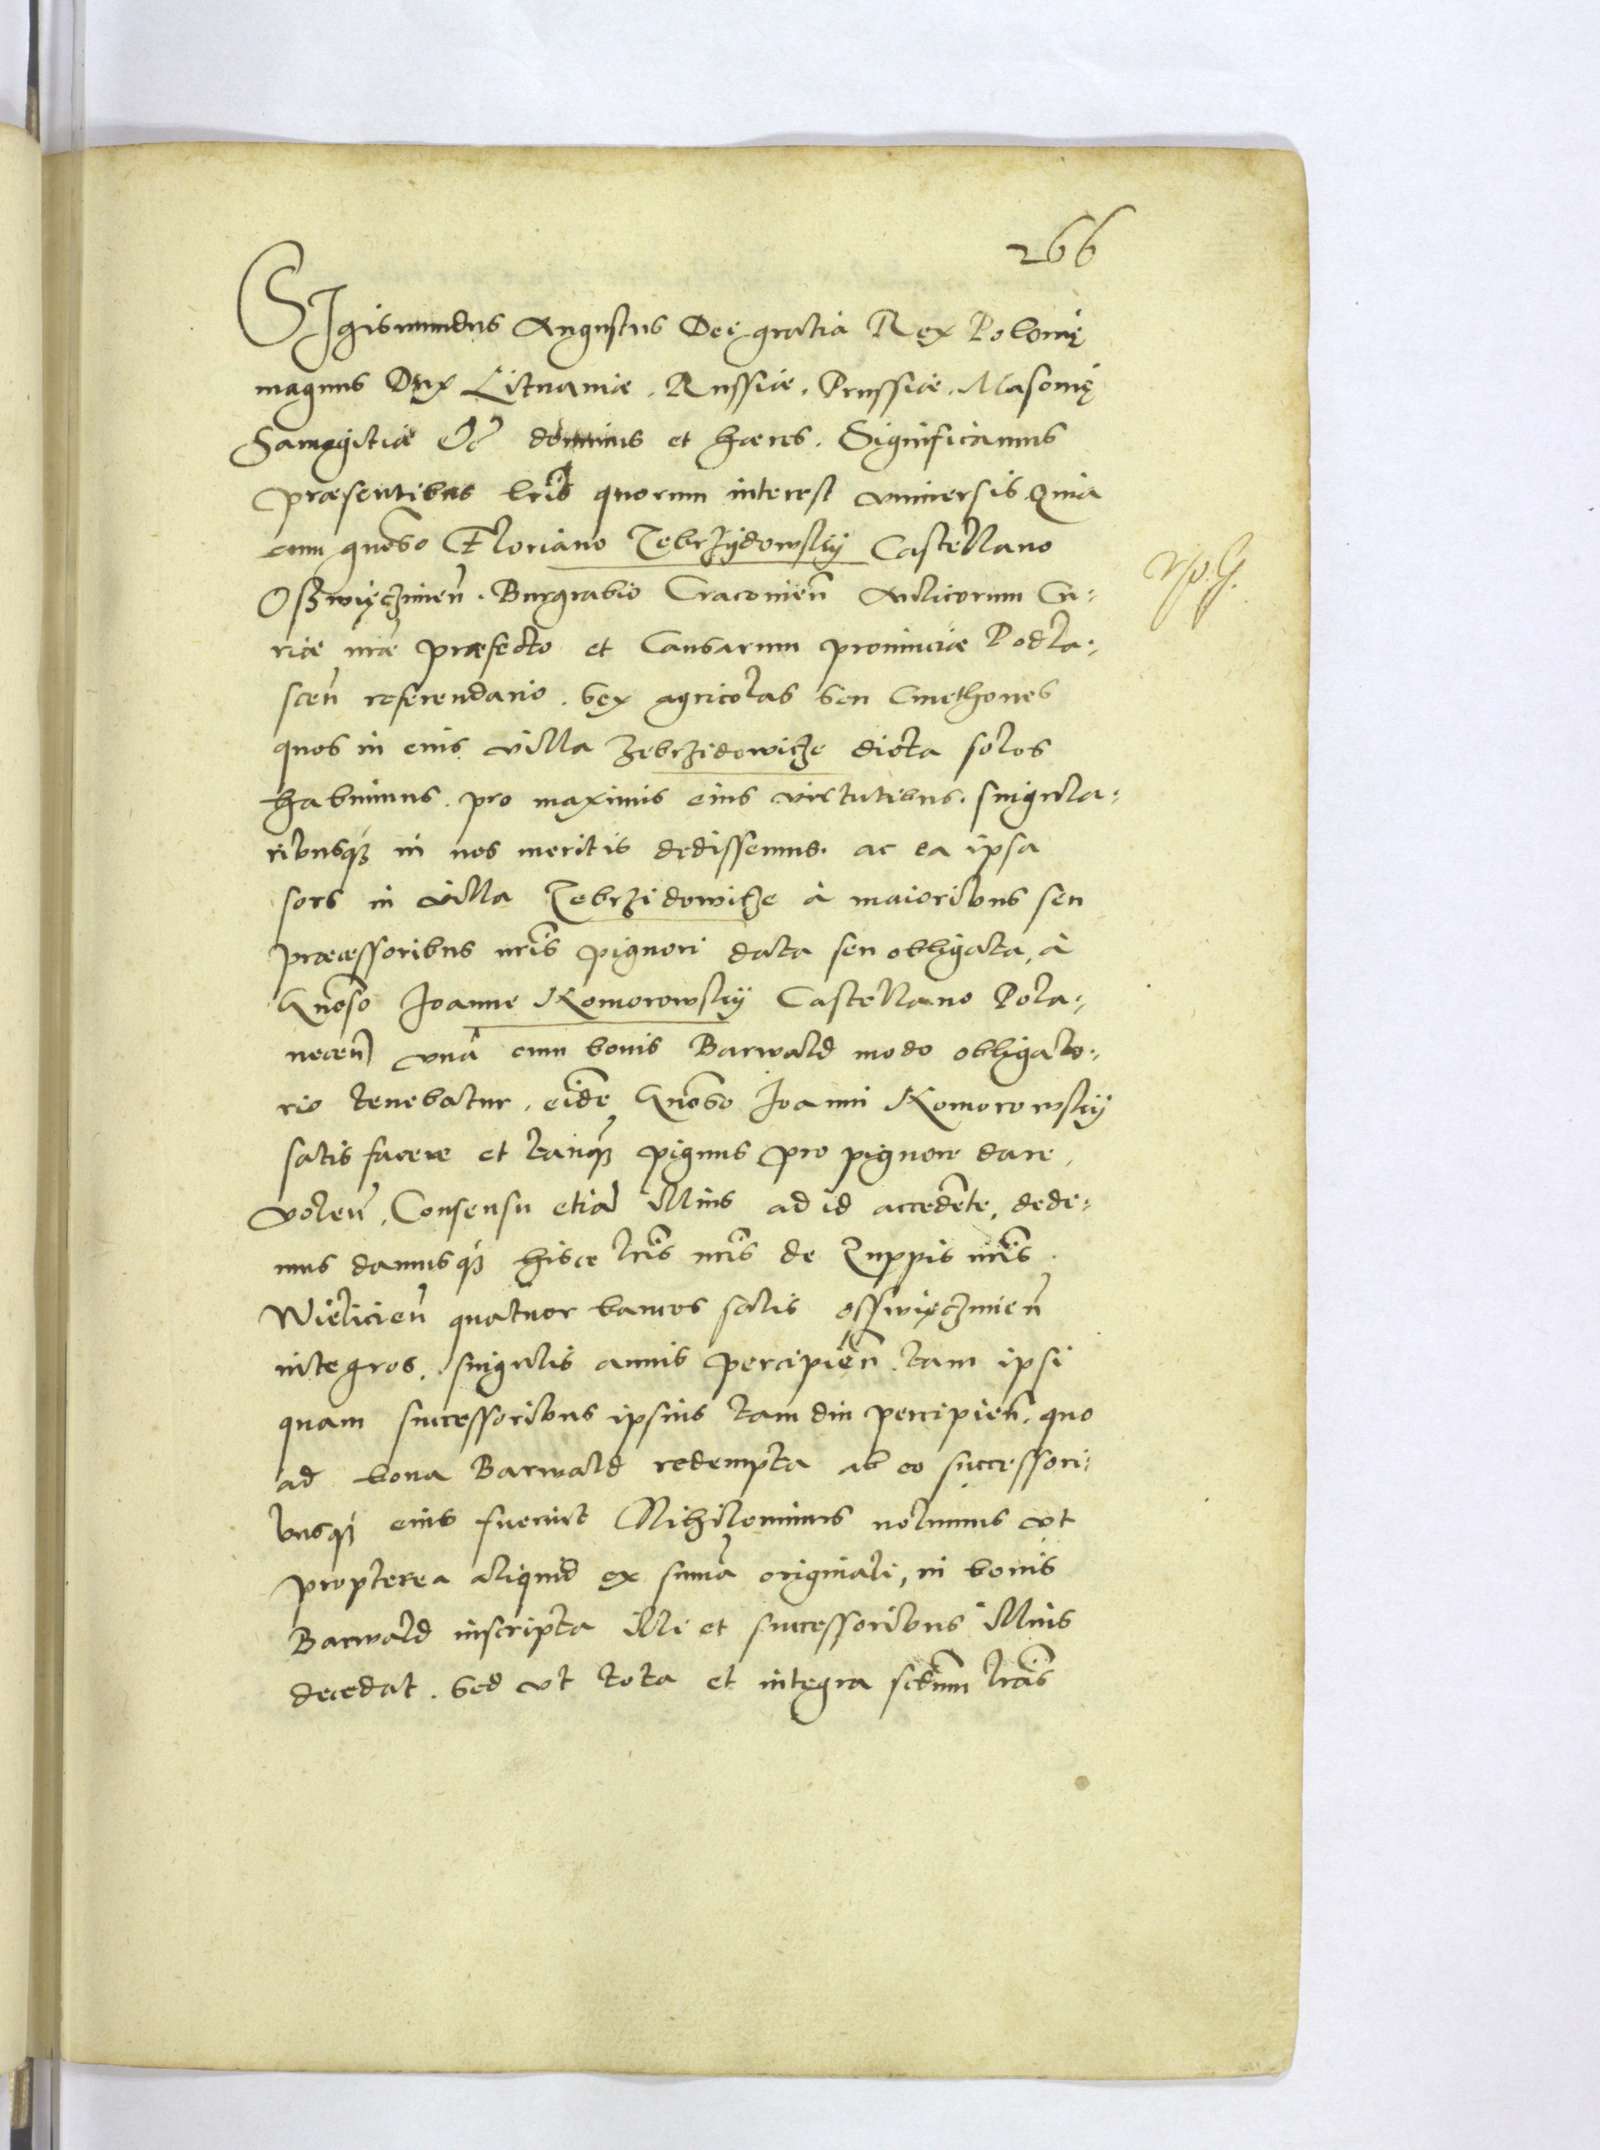 266
SIgismundus Augustus Dei gratia Rex Polonię
magnus Dux Lituaniæ. Russiæ. Prussiæ. Masouię
Samogitiæ &c dominus et hæres. Significamus
præsentibus lris quorum interest vniuersis Quia
cum gnoso Floriano Zebrzydowsky Castellano
Osswięczimen. Burgrabio Cracouien Aulicorum Cu-
riæ nræ præfecto et Causarum prouinciæ Podla-
scen referendario. sex agricolas seu Cmethones
quos in eius villa Zebrzidowicze dicta solos
habuimus. pro maximis eius virtutibus. singula-
ribusq in nos meritis dedissemus. ac ea ipsa
sors in villa Zebrzidowicze à maioribus seu
præcessoribus nris pignori data seu obligata, à
Gnoso Joanne Komorowsky Castellano Pola-
necen vnà cum bonis Barwald modo obligato-
rio tenebatur. eide Gnoso Joanni Komorowsky
satis facere et tanq pignus pro pignore dare
volen. Consensu etia illius ad id accedente, dede-
mus damusq hisce lris nris de Zuppis nris
Wielicien quatuor bancos salis osswięczimien
integros. singulis annis percipien. tam ipsi
quam successoribus ipsius tam diu percipien. quo
ad bona Barwald redempta ab eo successori-
busq eius fuerint Nihilominus nolumus vt
propterea aliquid ex suma originali, in bonis
Barwald inscripta illi et successoribus illius
decedat. sed vt tota et integra scdum lras